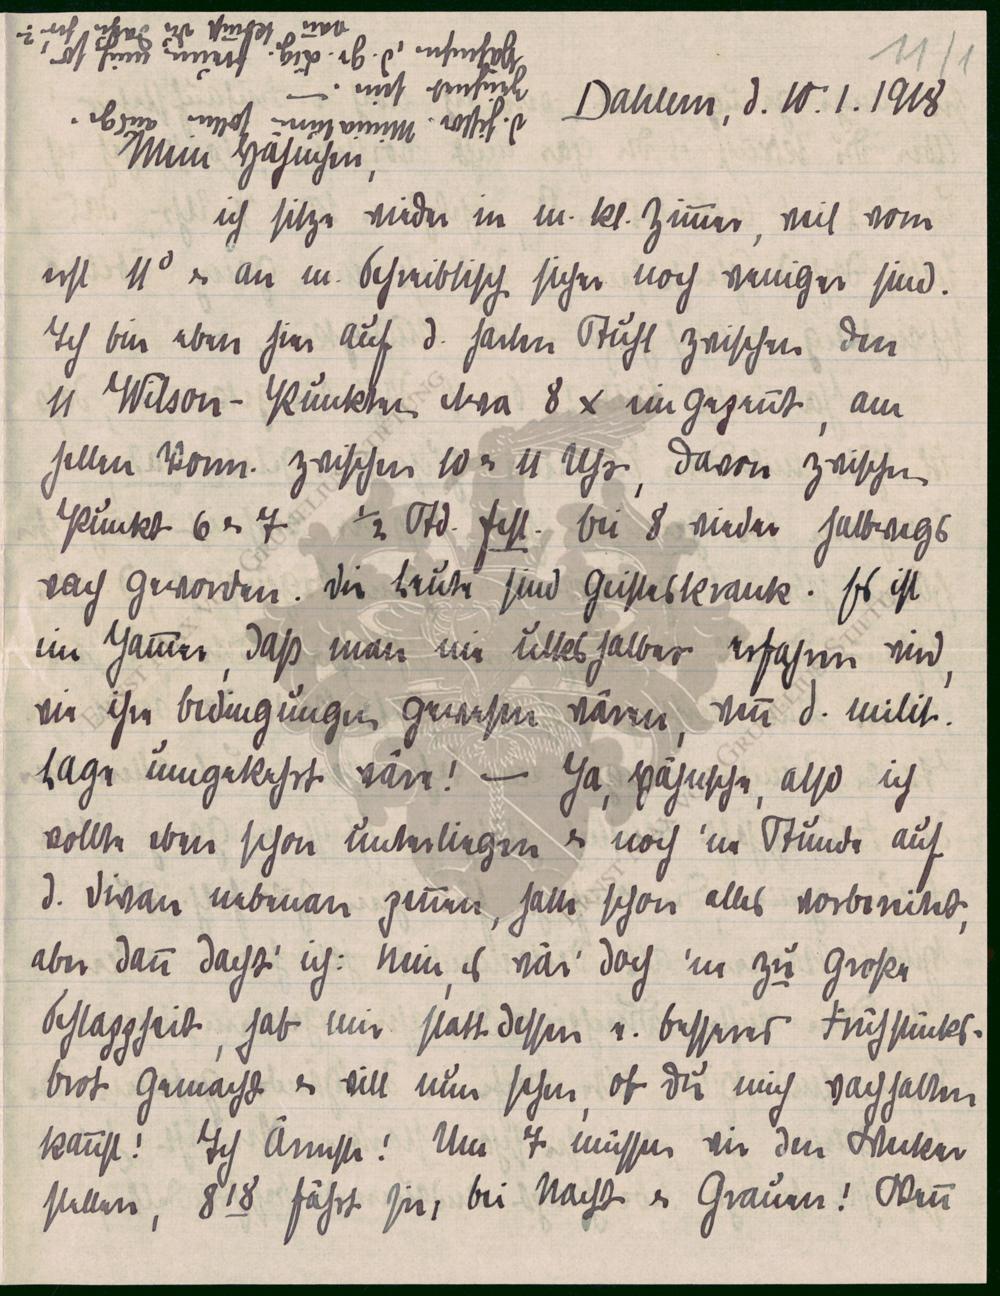 11/1
Dahlem, d. 10. 1. 1918
Mein Hähnchen,
ich sitze wieder in m. kl. Zim̅er, weil vorn
erst 11° & an m. Schreibtisch sicher noch weniger sind.
Ich bin eben hier auf d. harten Stuhl zwischen den
11 Wilson-Punkten etwa 8 x eingepennt, am
hellen Vorm. zwischen 10 & 11 Uhr, davon zwischen
Punkt 6 & 7 ½ Std. fest. bei 8 wieder halbwegs
wach geworden. Die Leute sind geisteskrank. Es ist
ein Jam̅er, daß man nie ulkshalber erfahren wird,
wie ihre Bedingungen gewesen wären, wen̅ d. milit.
Lage umgekehrt wäre! — Ja, Hähnche, also ich
wollte eben schon unterliegen & noch 'ne Stunde auf
d. Divan nebenan pennen, hatte schon alles vorbereitet,
aber dan̅ dacht' ich: Nein, es wär' doch 'ne zu große
Schlappheit, hab mir statt dessen e. besseres Frühstücks-
brot gemacht & will nun sehen, ob Du mich wachhalten
kan̅st! Ich Ärmste! Um 7 müssen wir den Wecker
stellen, 8 18 fährt sie, bei Nacht & Grauen! Wen̅
d. histor. Miniaturen sollen ausge-
zeichnet sein. —